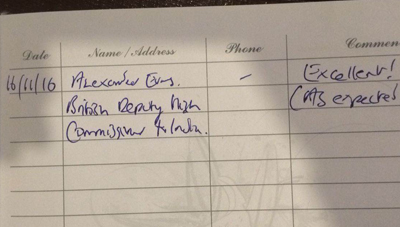 Date Name / Address Phone Commen
16/11/16 Alexander Evans. - Excellent!
British Deputy High (As expected
Commissioner to India.